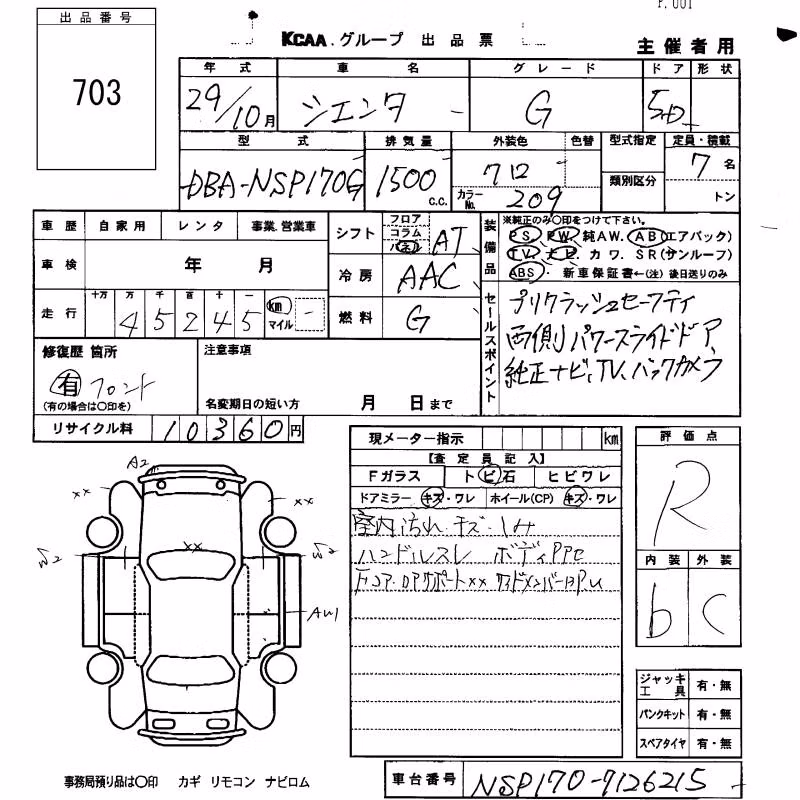 P.001
出品番号
703
KCAA.グループ 出品票
主催者用
年式 車名 グレード ドア 形状
29/10月 シエンタ G 5D
型式 排気量 外装色 色替 型式指定 定員・積載
DBA-NSP170G 1500 c.c. 712 カラーNo. 209 類別区分 7名 トン
車歴 自家用 レンタ 事業.営業車
車検 年 月
走行 十万 万 千 百 十 一
4 5 2 4 5 km マイル
シフト フロア コラム パネル AT
冷房 AAC
燃料 G
装備品
※純正のみ○印をつけて下さい。
PS・PW・純AW.AB(エアバック)
TV・ナビ・カワ.SR(サンルーフ)
ABS・新車保証書←(注)後日送りのみ
セールスポイント
プリクラッシュセーフティ
両側パワースライドドア
純正ナビ、TV、バックカメラ
修復歴 箇所
有 フロント
(有の場合は○印を)
注意事項
名変期日の短い方 月 日まで
リサイクル料 10360円
現メーター指示 km
【査定員記入】
Fガラス トビ石 ヒビワレ
ドアミラー キズ・ワレ ホイール(CP) キズ・ワレ
室内汚れ キズ・シミ
ハンドルスレ ボディPPC
Fコア.ロアサポート×× サイドメンバー
評価点
R
内装 外装
b C
ジャッキ工具 有・無
パンクキット 有・無
スペアタイヤ 有・無
A2
×× ××
××
W2 W2
AW1
事務局預り品は○印 カギ リモコン ナビロム
車台番号 NSP170-7126215